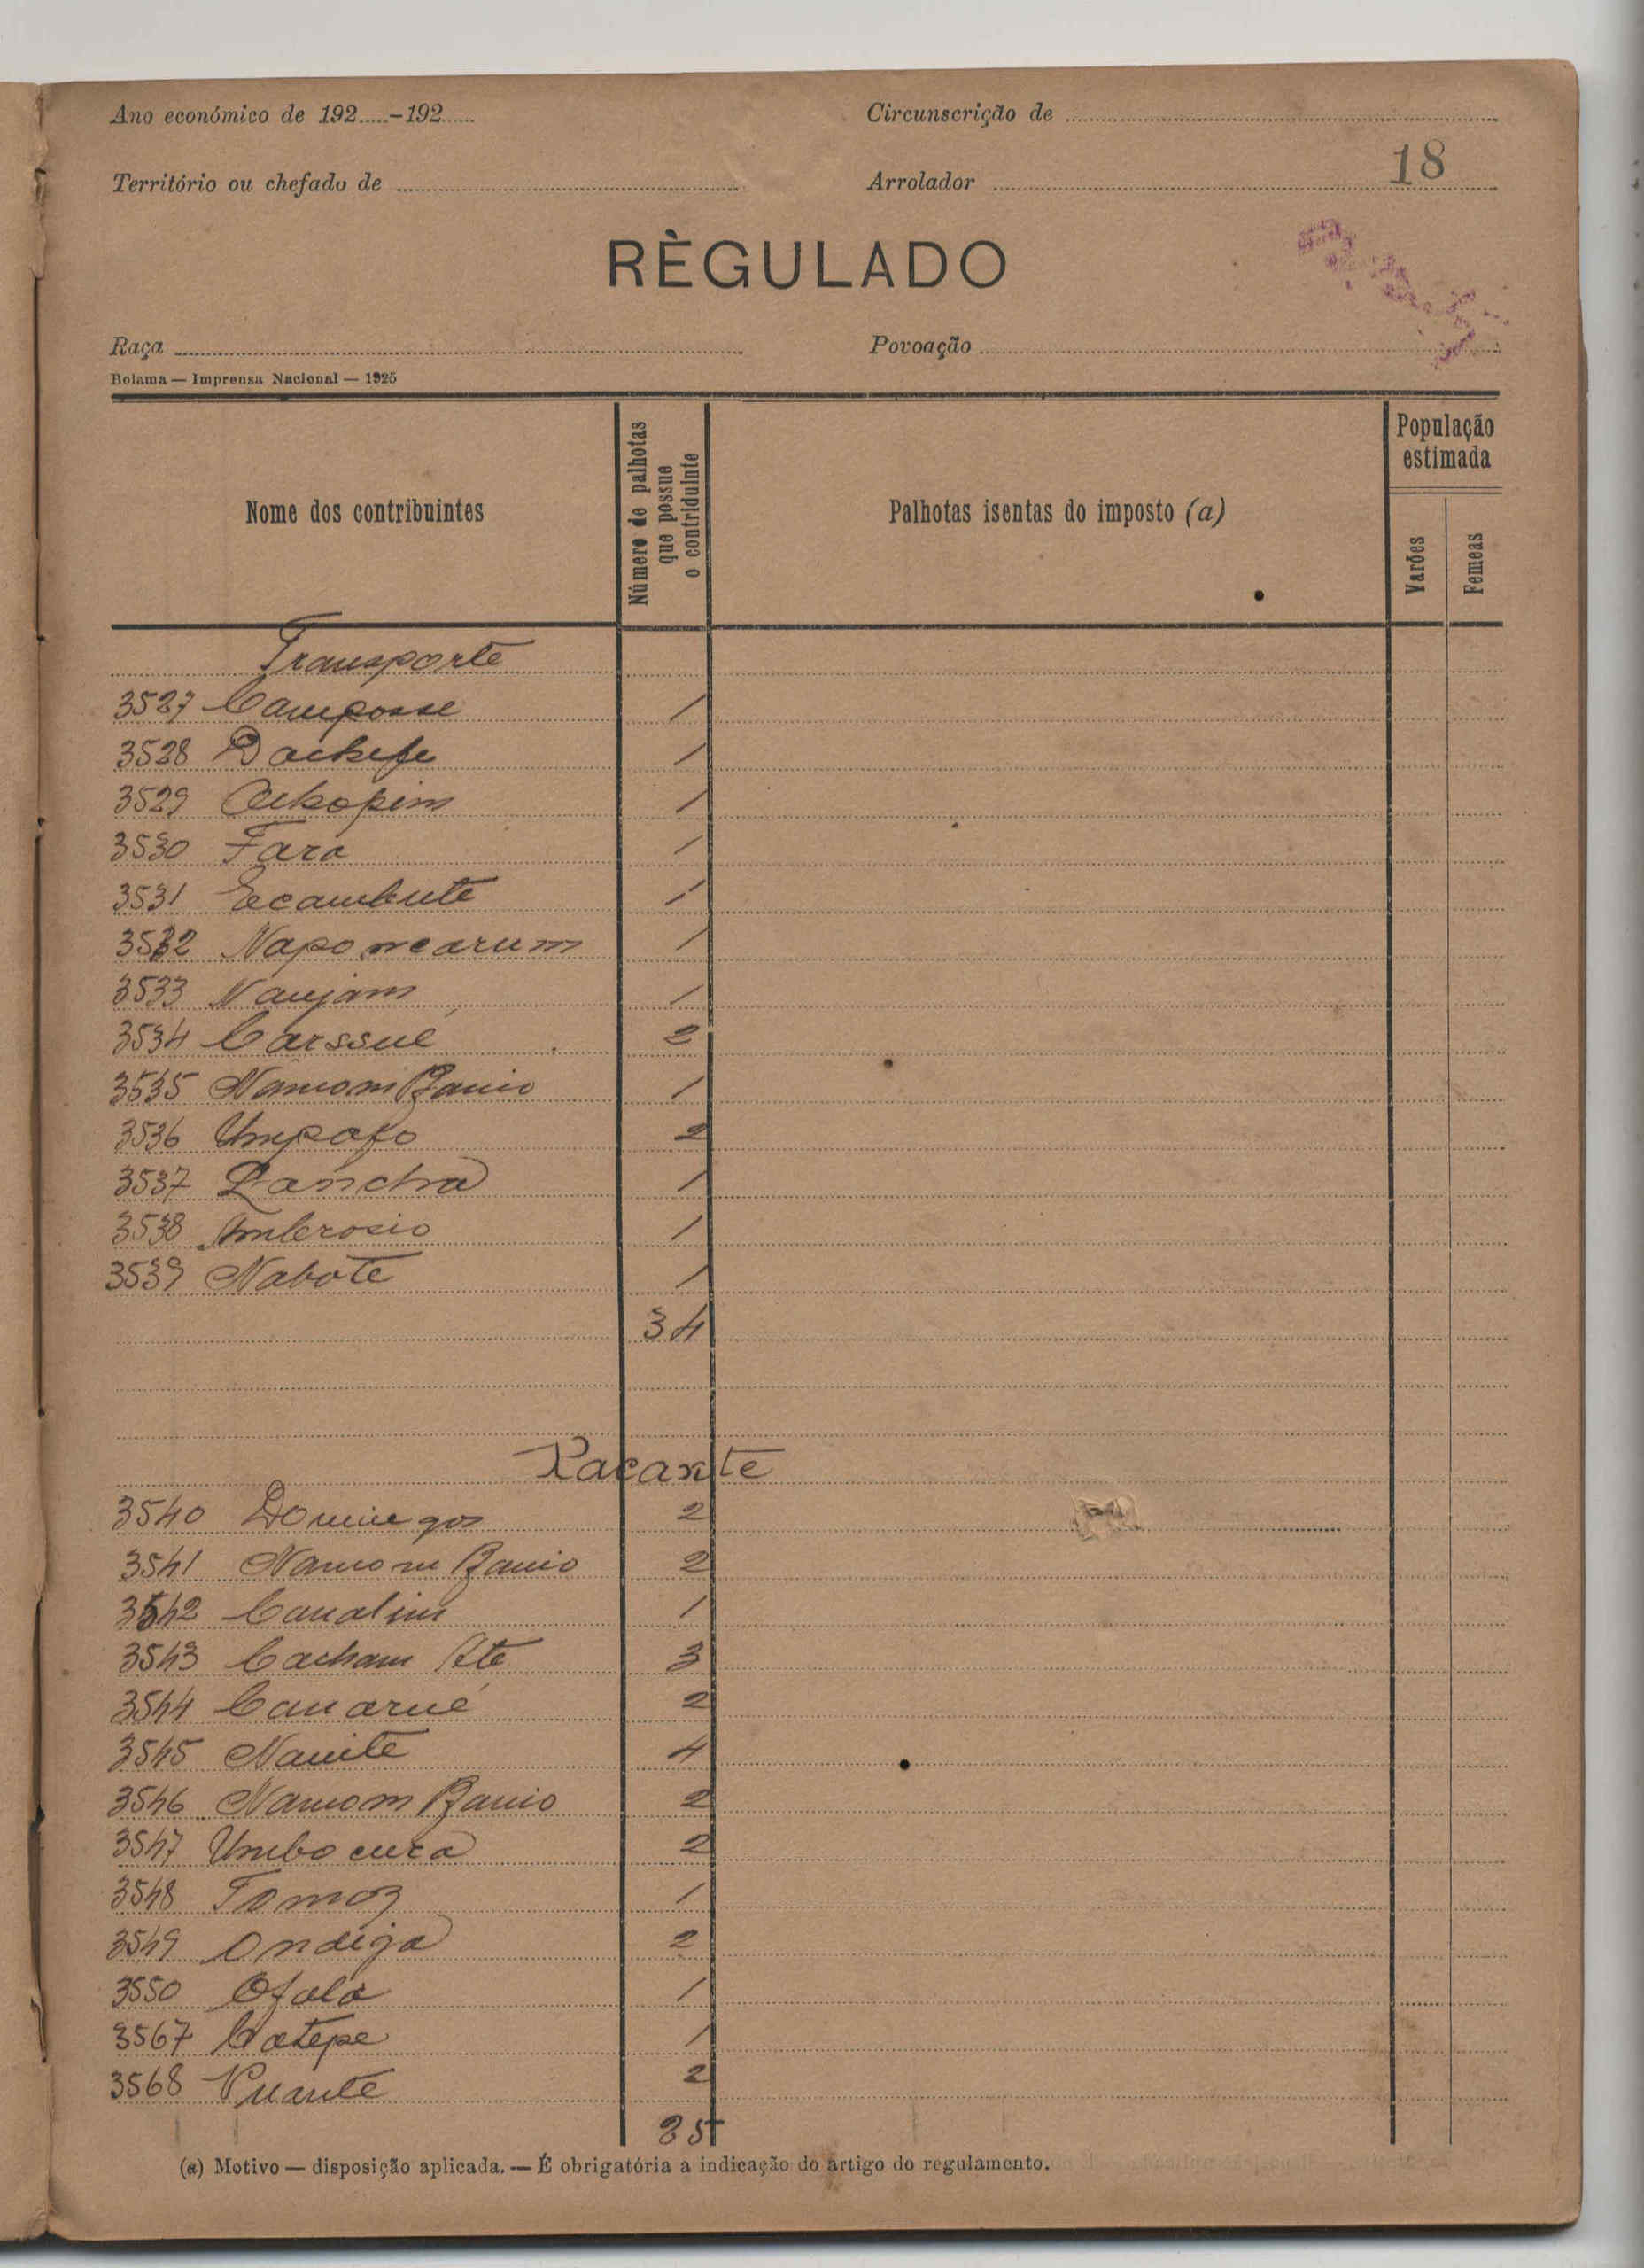 Ano económico de 192.....-192......
Circunscrição de
18
Território ou chefado de
Arrolador
RÈGULADO
Raça
Povoação
Bolama — Imprensa Nacional — 1925
Nome dos contribuintes
Número de palhotas que possue o contriduinte
Palhotas isentas do imposto (a)
População estimada
Varões
Femeas
Transporte
3527 Camposse 1
3528 1
3529 1
3530 Fara 1
3531 Ecambute 1
3532 1
3533 Naujam 1
3534 Carssué 2
3535 Namom Banio 1
3536 Umpafo 2
3537 Lancha 1
3538 Ambrosio 1
3539 Nabote 1
34
3540 Domingos 2
3541 Namom Banio 2
3542 1
3543 Cacham Ate 3
3544 2
3545 4
3546 Namom Banio 2
3547 Umbo cura 2
3548 Tomoz 1
3549 Ondiga 2
3550 Ofala 1
3567 Catepe 1
3568 2
(a) Motivo — disposição aplicada. — É obrigatória a indicação do artigo do regulamento.